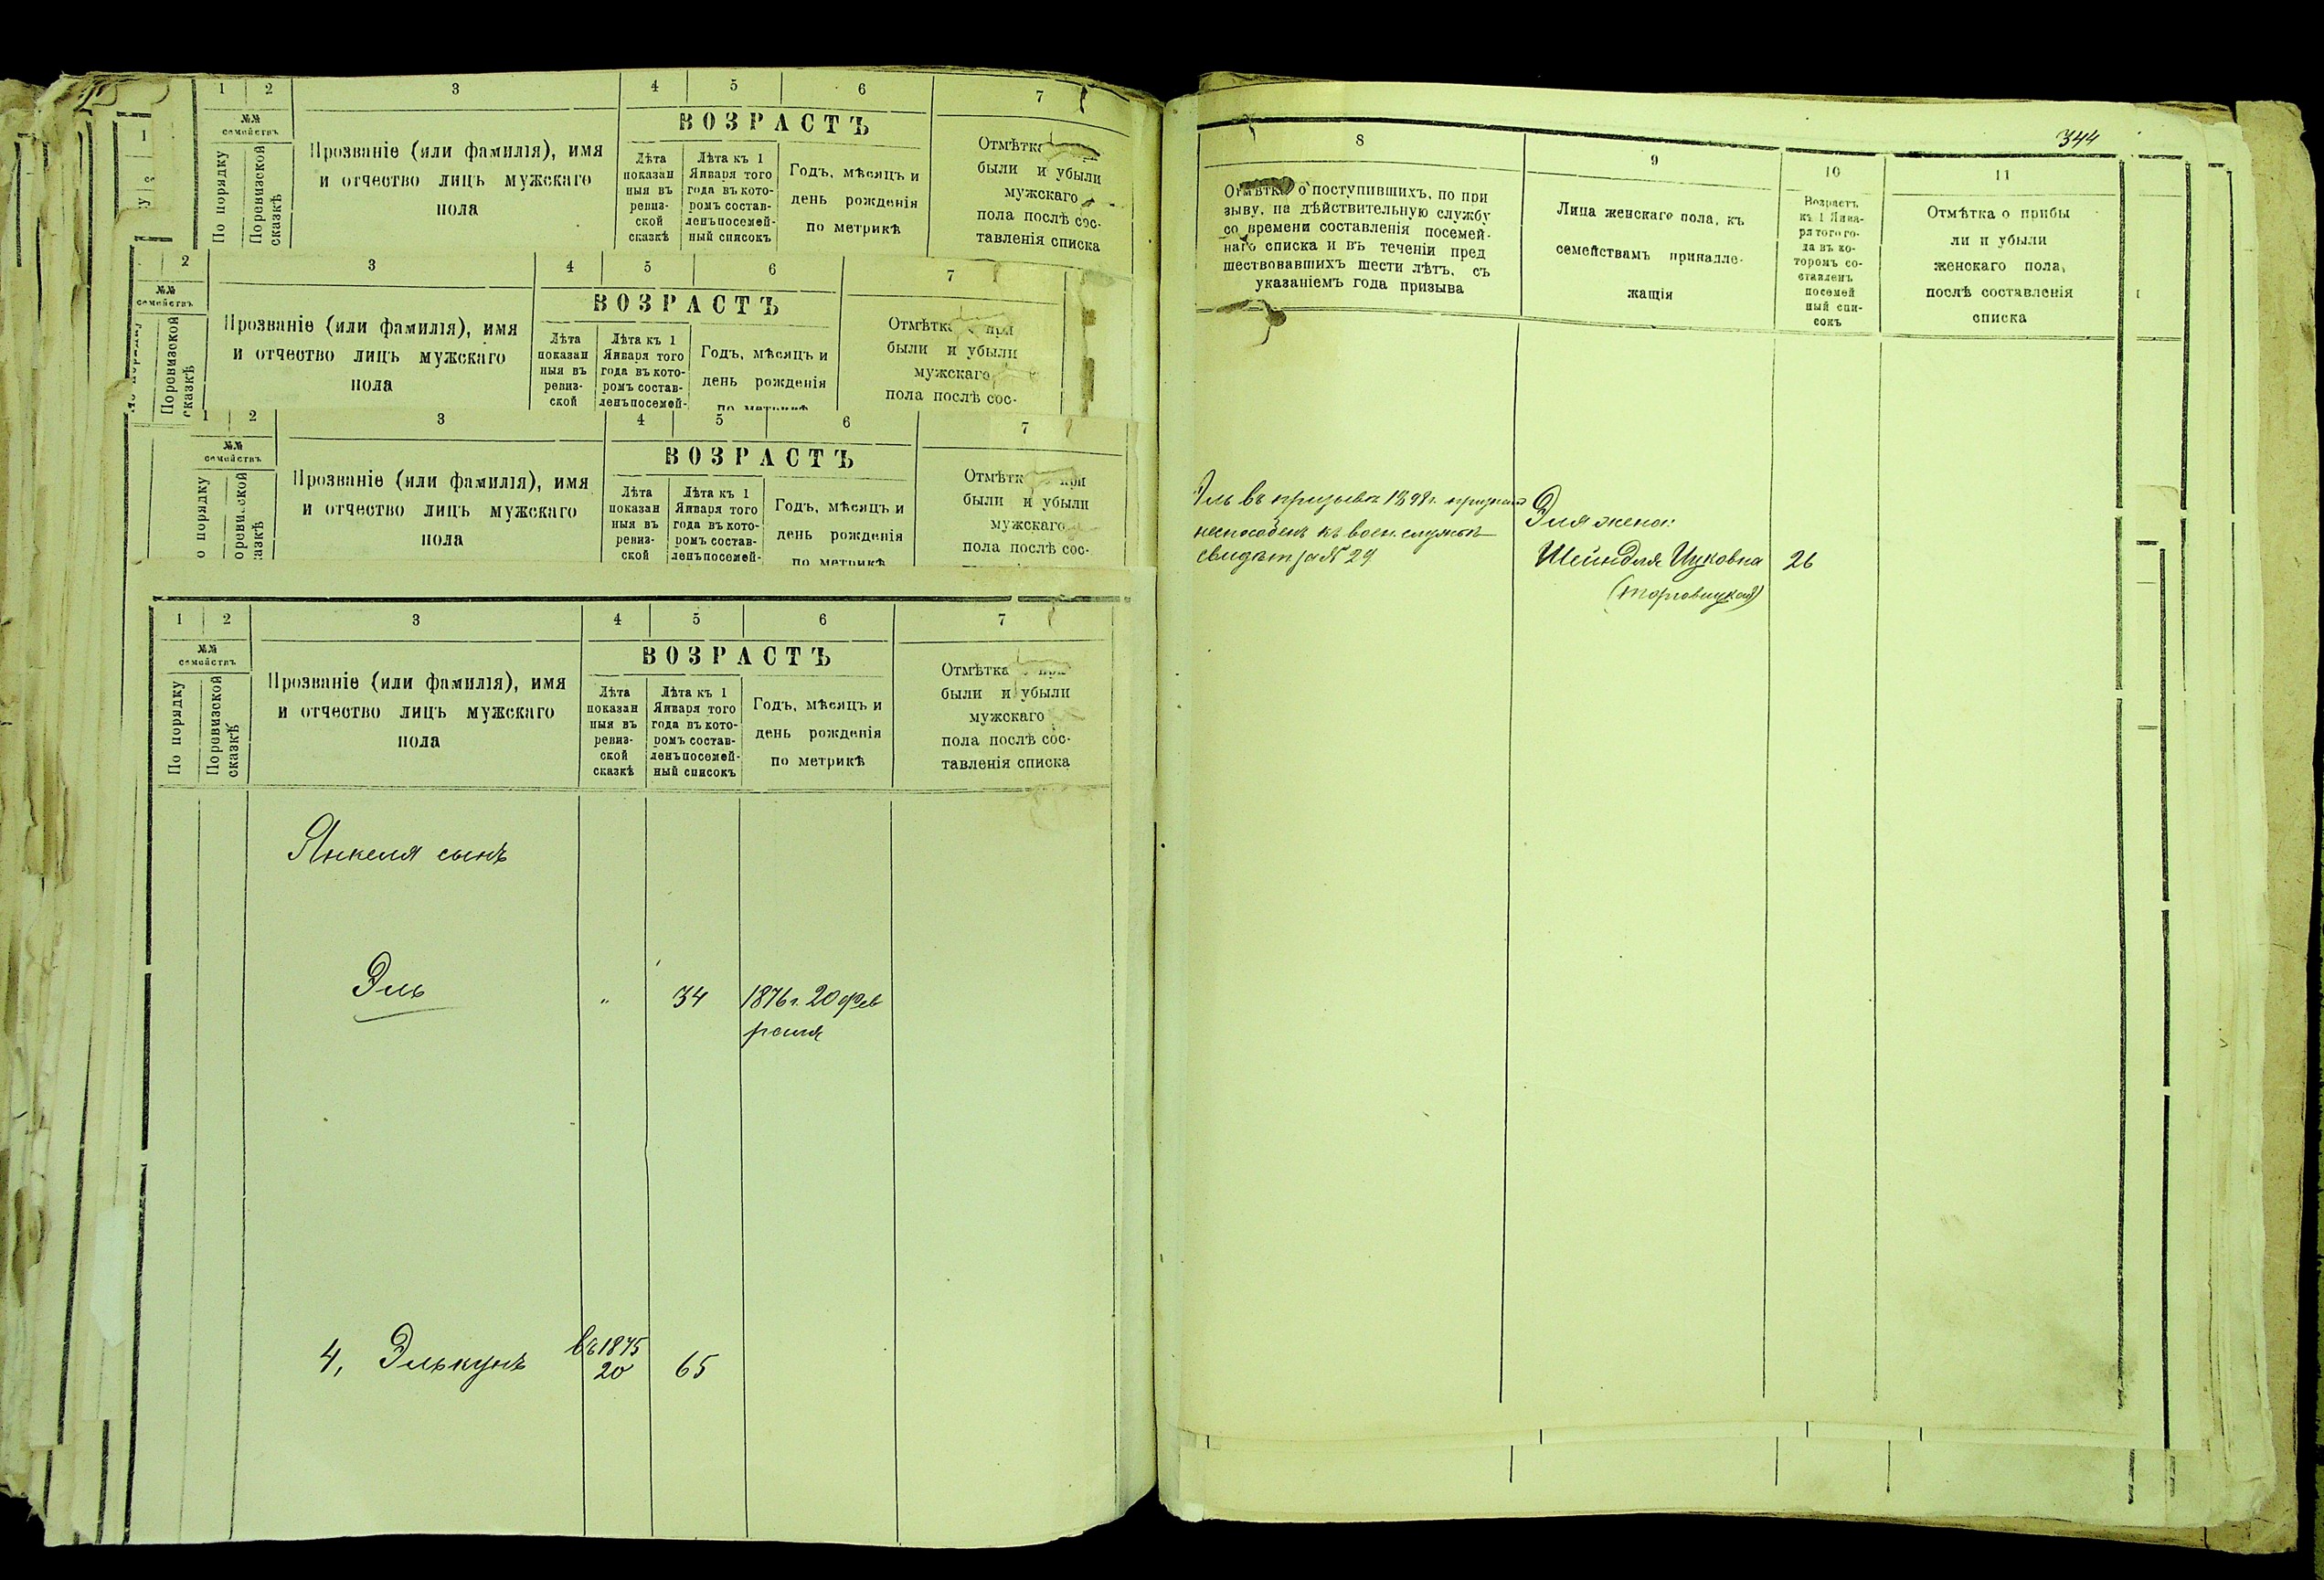 1 2 3 4 5 6 7
№№ семействъ
По порядку
Поревизской сказкѣ
Прозваніе (или фамилія), имя
и отчество лицъ мужскаго
пола
ВОЗРАСТЪ
Лѣта
показан
ныя въ
ревиз-
ской
сказкѣ
Лѣта къ 1
Января того
года въ кото-
ромъ состав-
ленъ посемей-
ный списокъ
Годъ, мѣсяцъ и
день рожденія
по метрикѣ
Отмѣтка
были и убыли
мужскаго
пола послѣ сос-
тавленія списка
2 3 4 5 6 7
№№
семействъ
Поревизской
сказкѣ
Прозваніе (или фамилія), имя
и отчество лицъ мужскаго
пола
ВОЗРАСТЪ
Лѣта
показан
ныя въ
ревиз-
ской
Лѣта къ 1
Января того
года въ кото-
ромъ состав-
ленъ посемей-
Годъ, мѣсяцъ и
день рожденія
по метрикѣ
Отмѣтка при
были и убыли
мужскаго
пола послѣ сос-
1 2 3 4 5 6 7
№№
семействъ
о порядку
оревизской
казкѣ
Прозваніе (или фамилія), имя
и отчество лицъ мужскаго
пола
ВОЗРАСТЪ
Лѣта
показан
ныя въ
ревиз-
ской
Лѣта къ 1
Января того
года въ кото-
ромъ состав-
ленъ посемей-
Годъ, мѣсяцъ и
день рожденія
по метрикѣ
Отмѣтк при
были и убыли
мужскаго
пола послѣ сос-
1 2 3 4 5 6 7
№№
семействъ
По порядку
Поревизской
сказкѣ
Прозваніе (или фамилія), имя
и отчество лицъ мужскаго
пола
ВОЗРАСТЪ
Лѣта
показан
ныя въ
ревиз-
ской
сказкѣ
Лѣта къ 1
Января того
года въ кото-
ромъ состав-
ленъ посемей-
ный списокъ
Годъ, мѣсяцъ и
день рожденія
по метрикѣ
Отмѣтка при
были и убыли
мужскаго
пола послѣ сос-
тавленія списка
Янкеля сынъ
Эль " 34 1876 г. 20 Фев
раля
4, Элькунъ въ 1875
20 65
344
8 9 10 11
Отмѣтка о поступившихъ, по при
зыву, на дѣйствительную службу
со времени составленія посемей-
наго списка и въ теченіи пред
шествовавшихъ шести лѣтъ, съ
указаніемъ года призыва
Лица женскаго пола, къ
семействамъ принадле-
жащія
Возрастъ
къ 1 Янва-
ря того го-
да въ ко-
торомъ со-
ставленъ
посемей
ный спи-
сокъ
Отмѣтка о прибы
ли и убыли
женскаго пола,
послѣ составленія
списка
Эль въ призывъ 1898 г. признанъ
неспособенъ къ воен. службѣ
свидѣт за № 29
Эля жена:
Шейндля Ицковна 26
(Торговицкая)